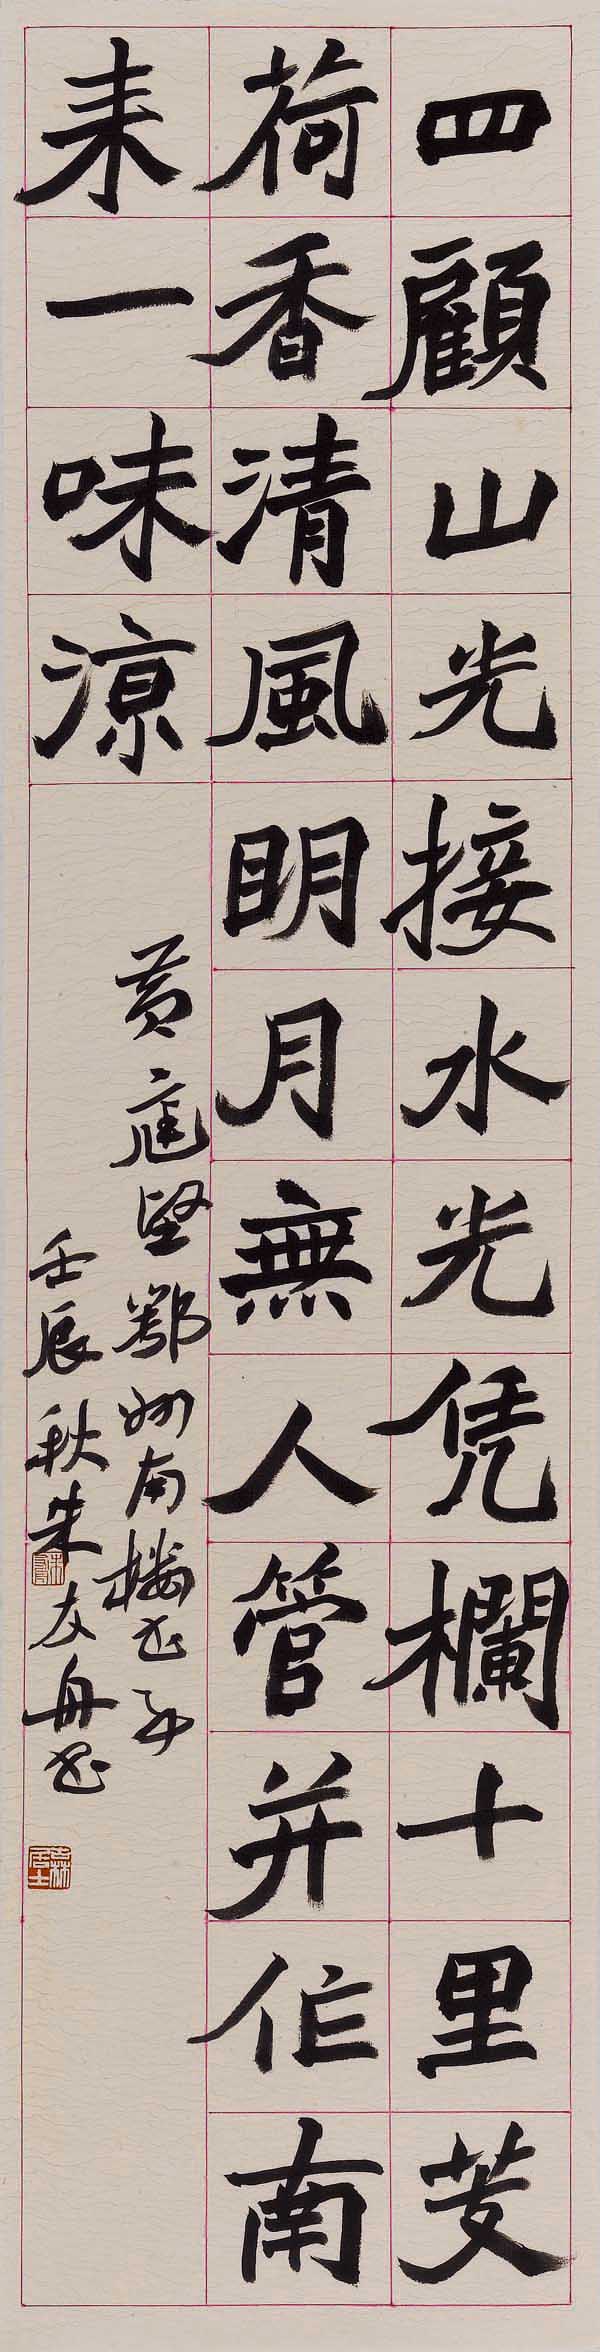 四顧山光接水光凭欄十里芰
荷香清風明月無人管并作南
来一味涼
黄庭堅鄂州南樓书事
壬辰秋朱友舟书